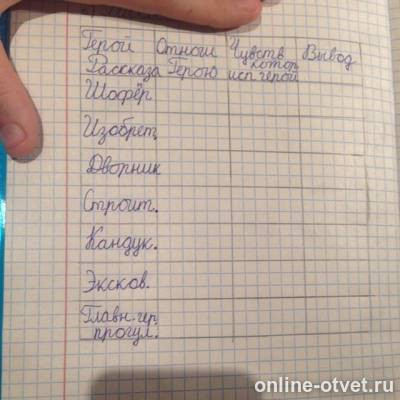 Герой Отнош Чувств Вывод
Рассказа Герою котор
исп герой
Шофёр
Изобрет.
Дворник
Строит.
Кандук.
Эксков.
Главн.гер
прогул.
online-otvet.ru